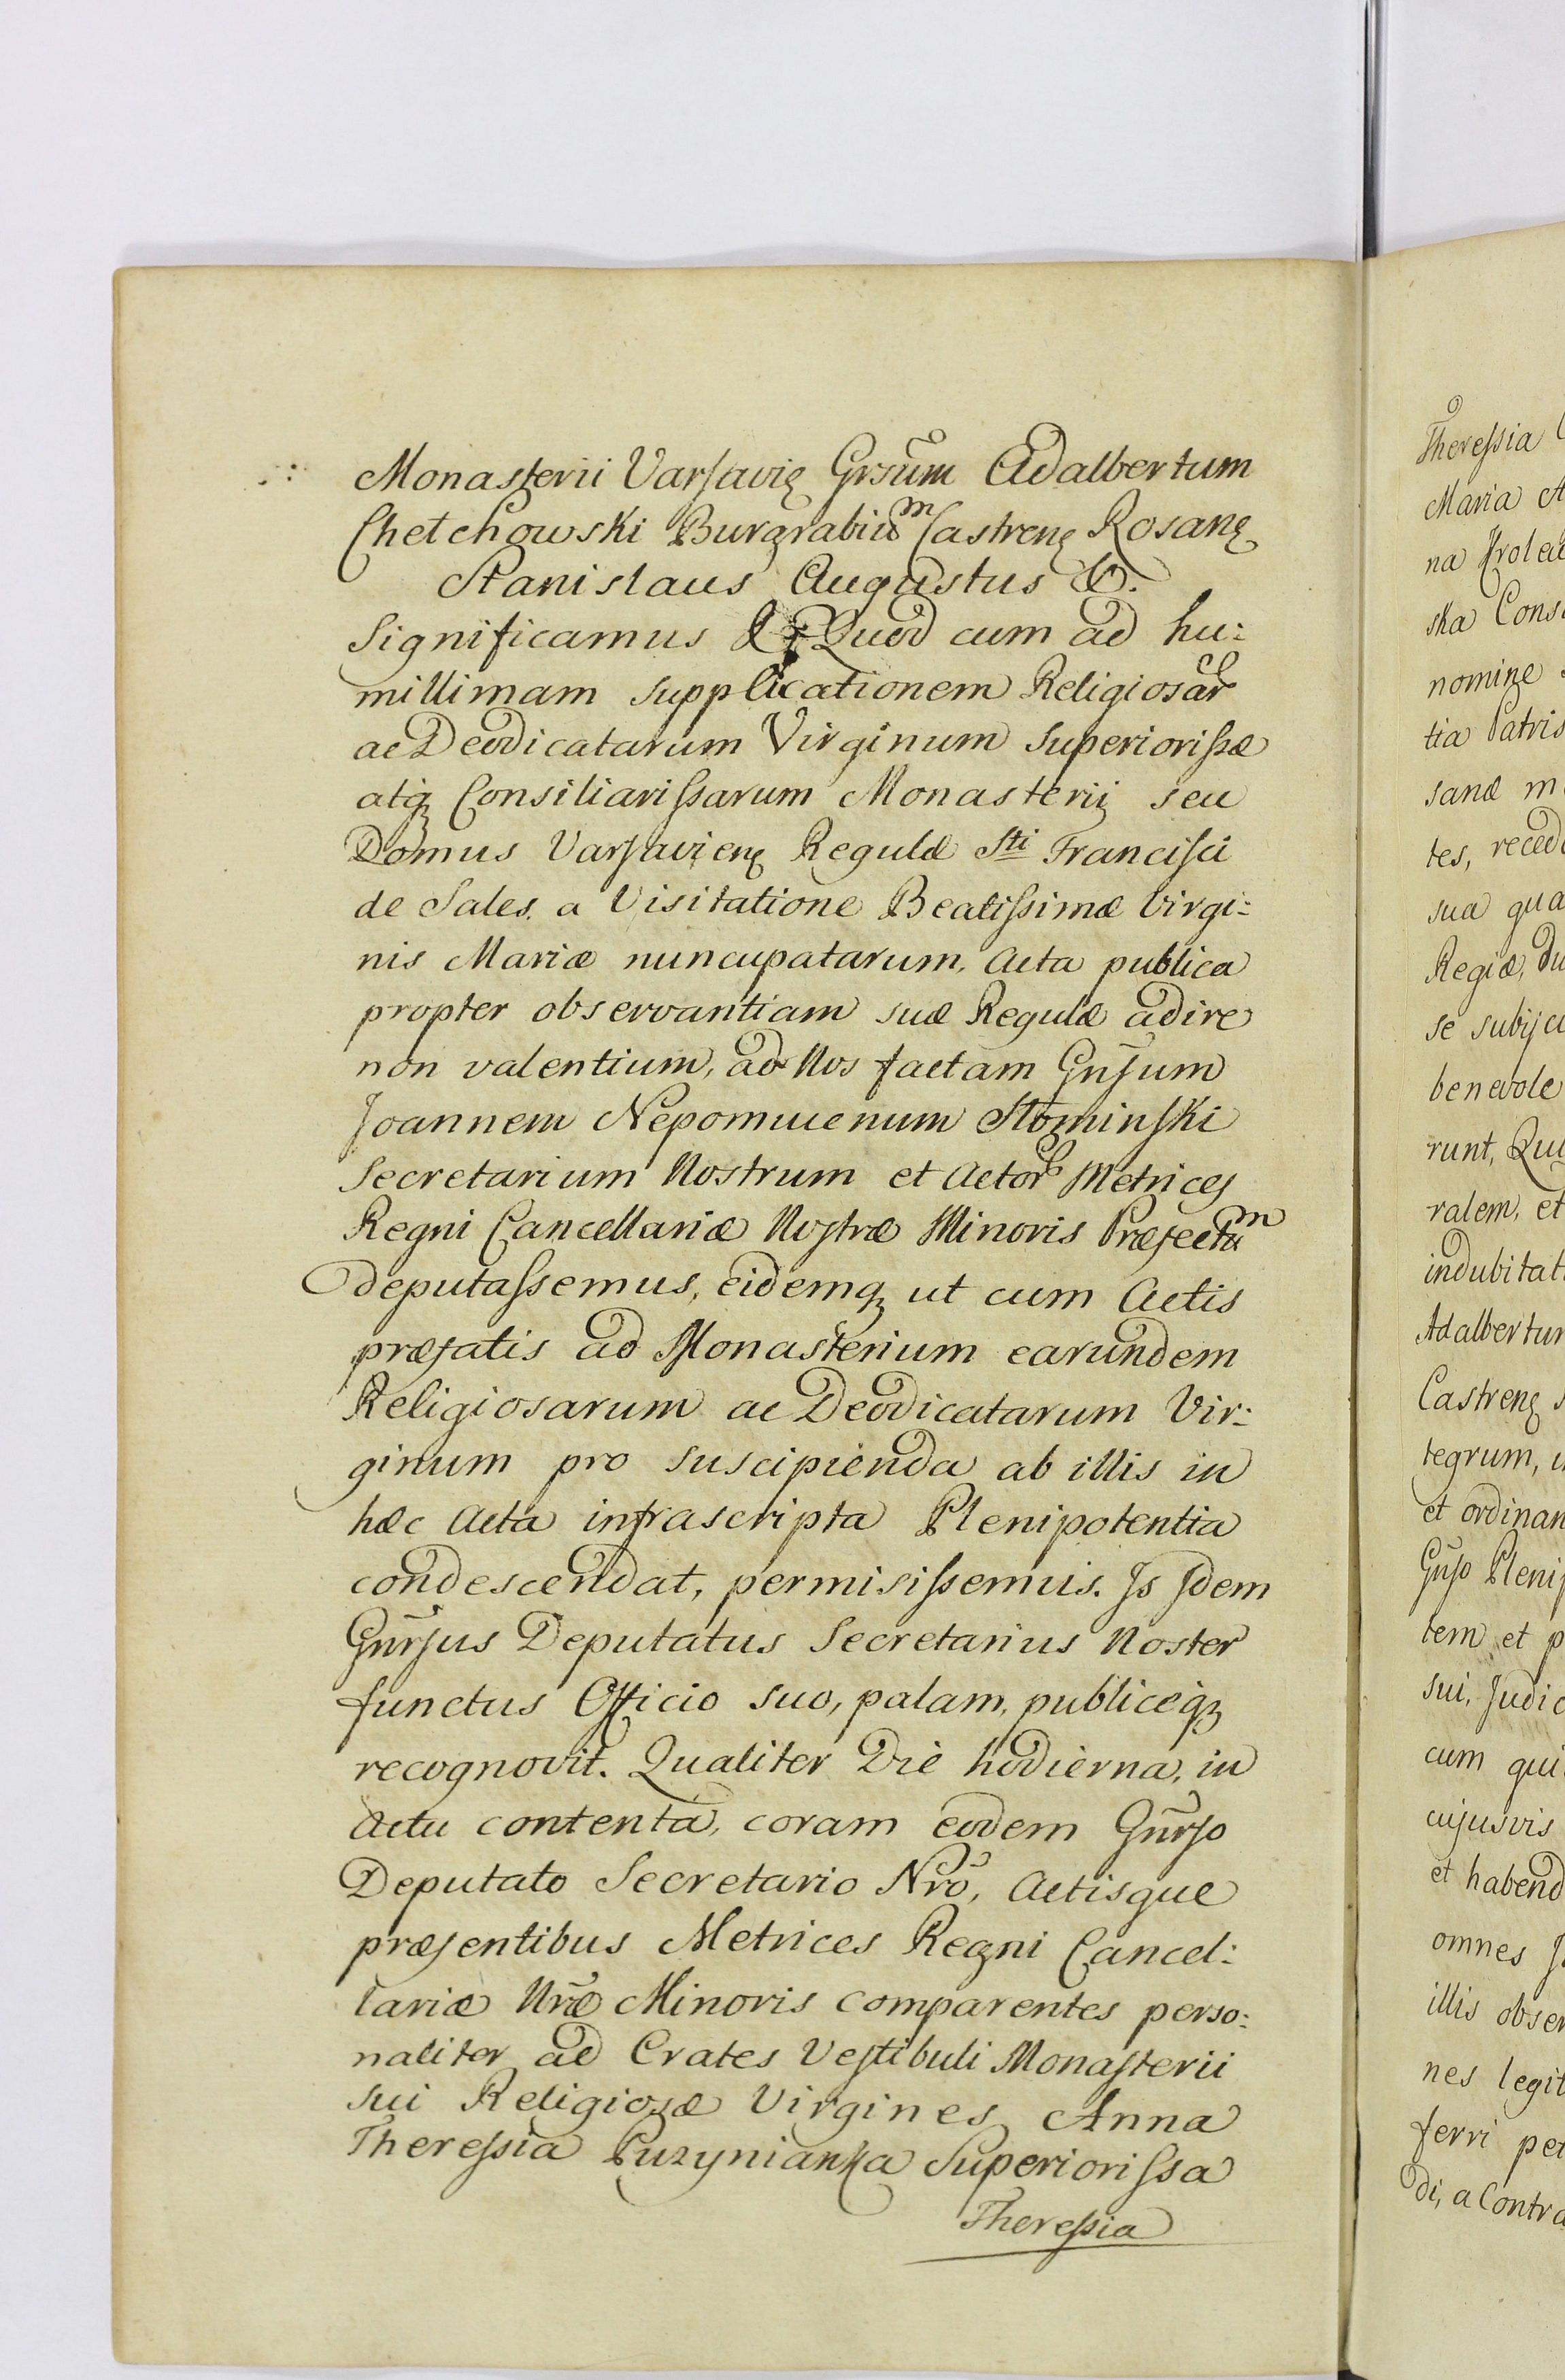 Monasterii Varsavię Grsũm Adalbertum
Chetchowski Burgrabiu^m Castrenę Rosanę
Stanislaus Augustus &.
Significamus & Quod cum ad hu:
millimam supplicationem Religiosar
ac Deodicatarum Virginum Superiorissæ
atq Consiliarissarum Monasterii seu
Domus Varsavienę Regulæ Sti Francisci
de Sales. a Visitatione Beatissimæ Virgi:
nis Mariæ nuncupatarum, Acta publica
propter observantiam suæ Regulæ adire
non valentium, ad Nos factam Gñsum
Joannem Nepomucenum Slominski
Secretarium Nostrum et Actor Metrices
Regni Cancellariæ Nostræ Minoris Præfectu^m
deputassemus, eidemq ut cum Actis
præfatis ad Monasterium earundem
Religiosarum ac Deodicatarum Vir:
ginum pro suscipienda ab illis in
hæc Acta infrascripta Plenipotentia
condescendat, permisissemus. Is Idem
Gnrsus Deputatus Secretarius Noster
functus Officio suo, palam, publiceq
recognovit. Qualiter Die hodierna, in
Actu contenta, coram eodem Gñrso
Deputato Secretario Nrõ, Actisque
præsentibus Metrices Regni Cancel:
lariæ Nræ Minoris comparentes perso:
naliter ad Crates Vestibuli Monasterii
sui Religiosæ Virgines Anna
Theressia Puzynianka Superiorissa
Theressia
Theressia
Maria A
na
ska Cons
nomine
tia Patris
sanæ m
tes, reced
sua qua
Regiæ, Du
se subijci
benevole
runt, Qui
ralem, et
indubitat
Adalbertum
Castrenę s
tegrum,
et ordinan
Gñso Plenip
tem et p
sui, Judic
cum qui
cujusvis
et habend
omnes
illis obser
nes legit
ferri per
di, a Contra